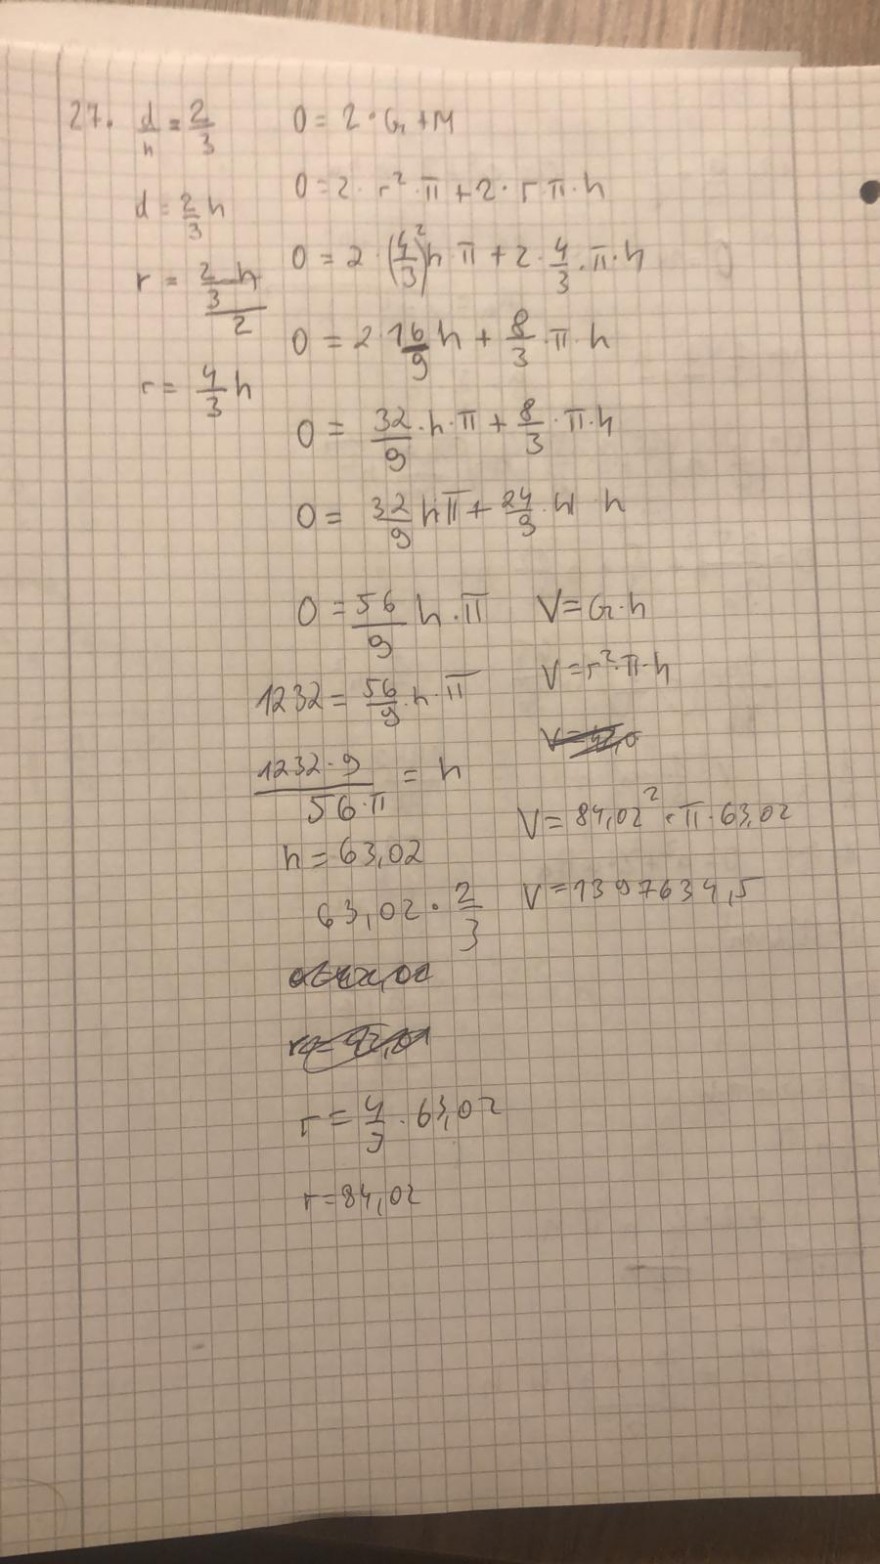 27. d/h = 2/3
d = 2/3 h
r = (2/3 h)/2
r = 4/3 h
O = 2 · G + M
O = 2 · r² · π + 2 · r π · h
O = 2 · (4/3)² h π + 2 · 4/3 · π · h
O = 2 16/9 h + 8/3 · π · h
O = 32/9 · h · π + 8/3 · π · h
O = 32/9 h π + 24/9 · π h
O = 56/9 h · π
1232 = 56/9 · h · π
(1232 · 9)/(56 · π) = h
h = 63,02
63,02 · 2/3
r = 4/3 · 63,02
r = 84,02
V = G · h
V = r² · π · h
V = 84,02² · π · 63,02
V = 1397634,5